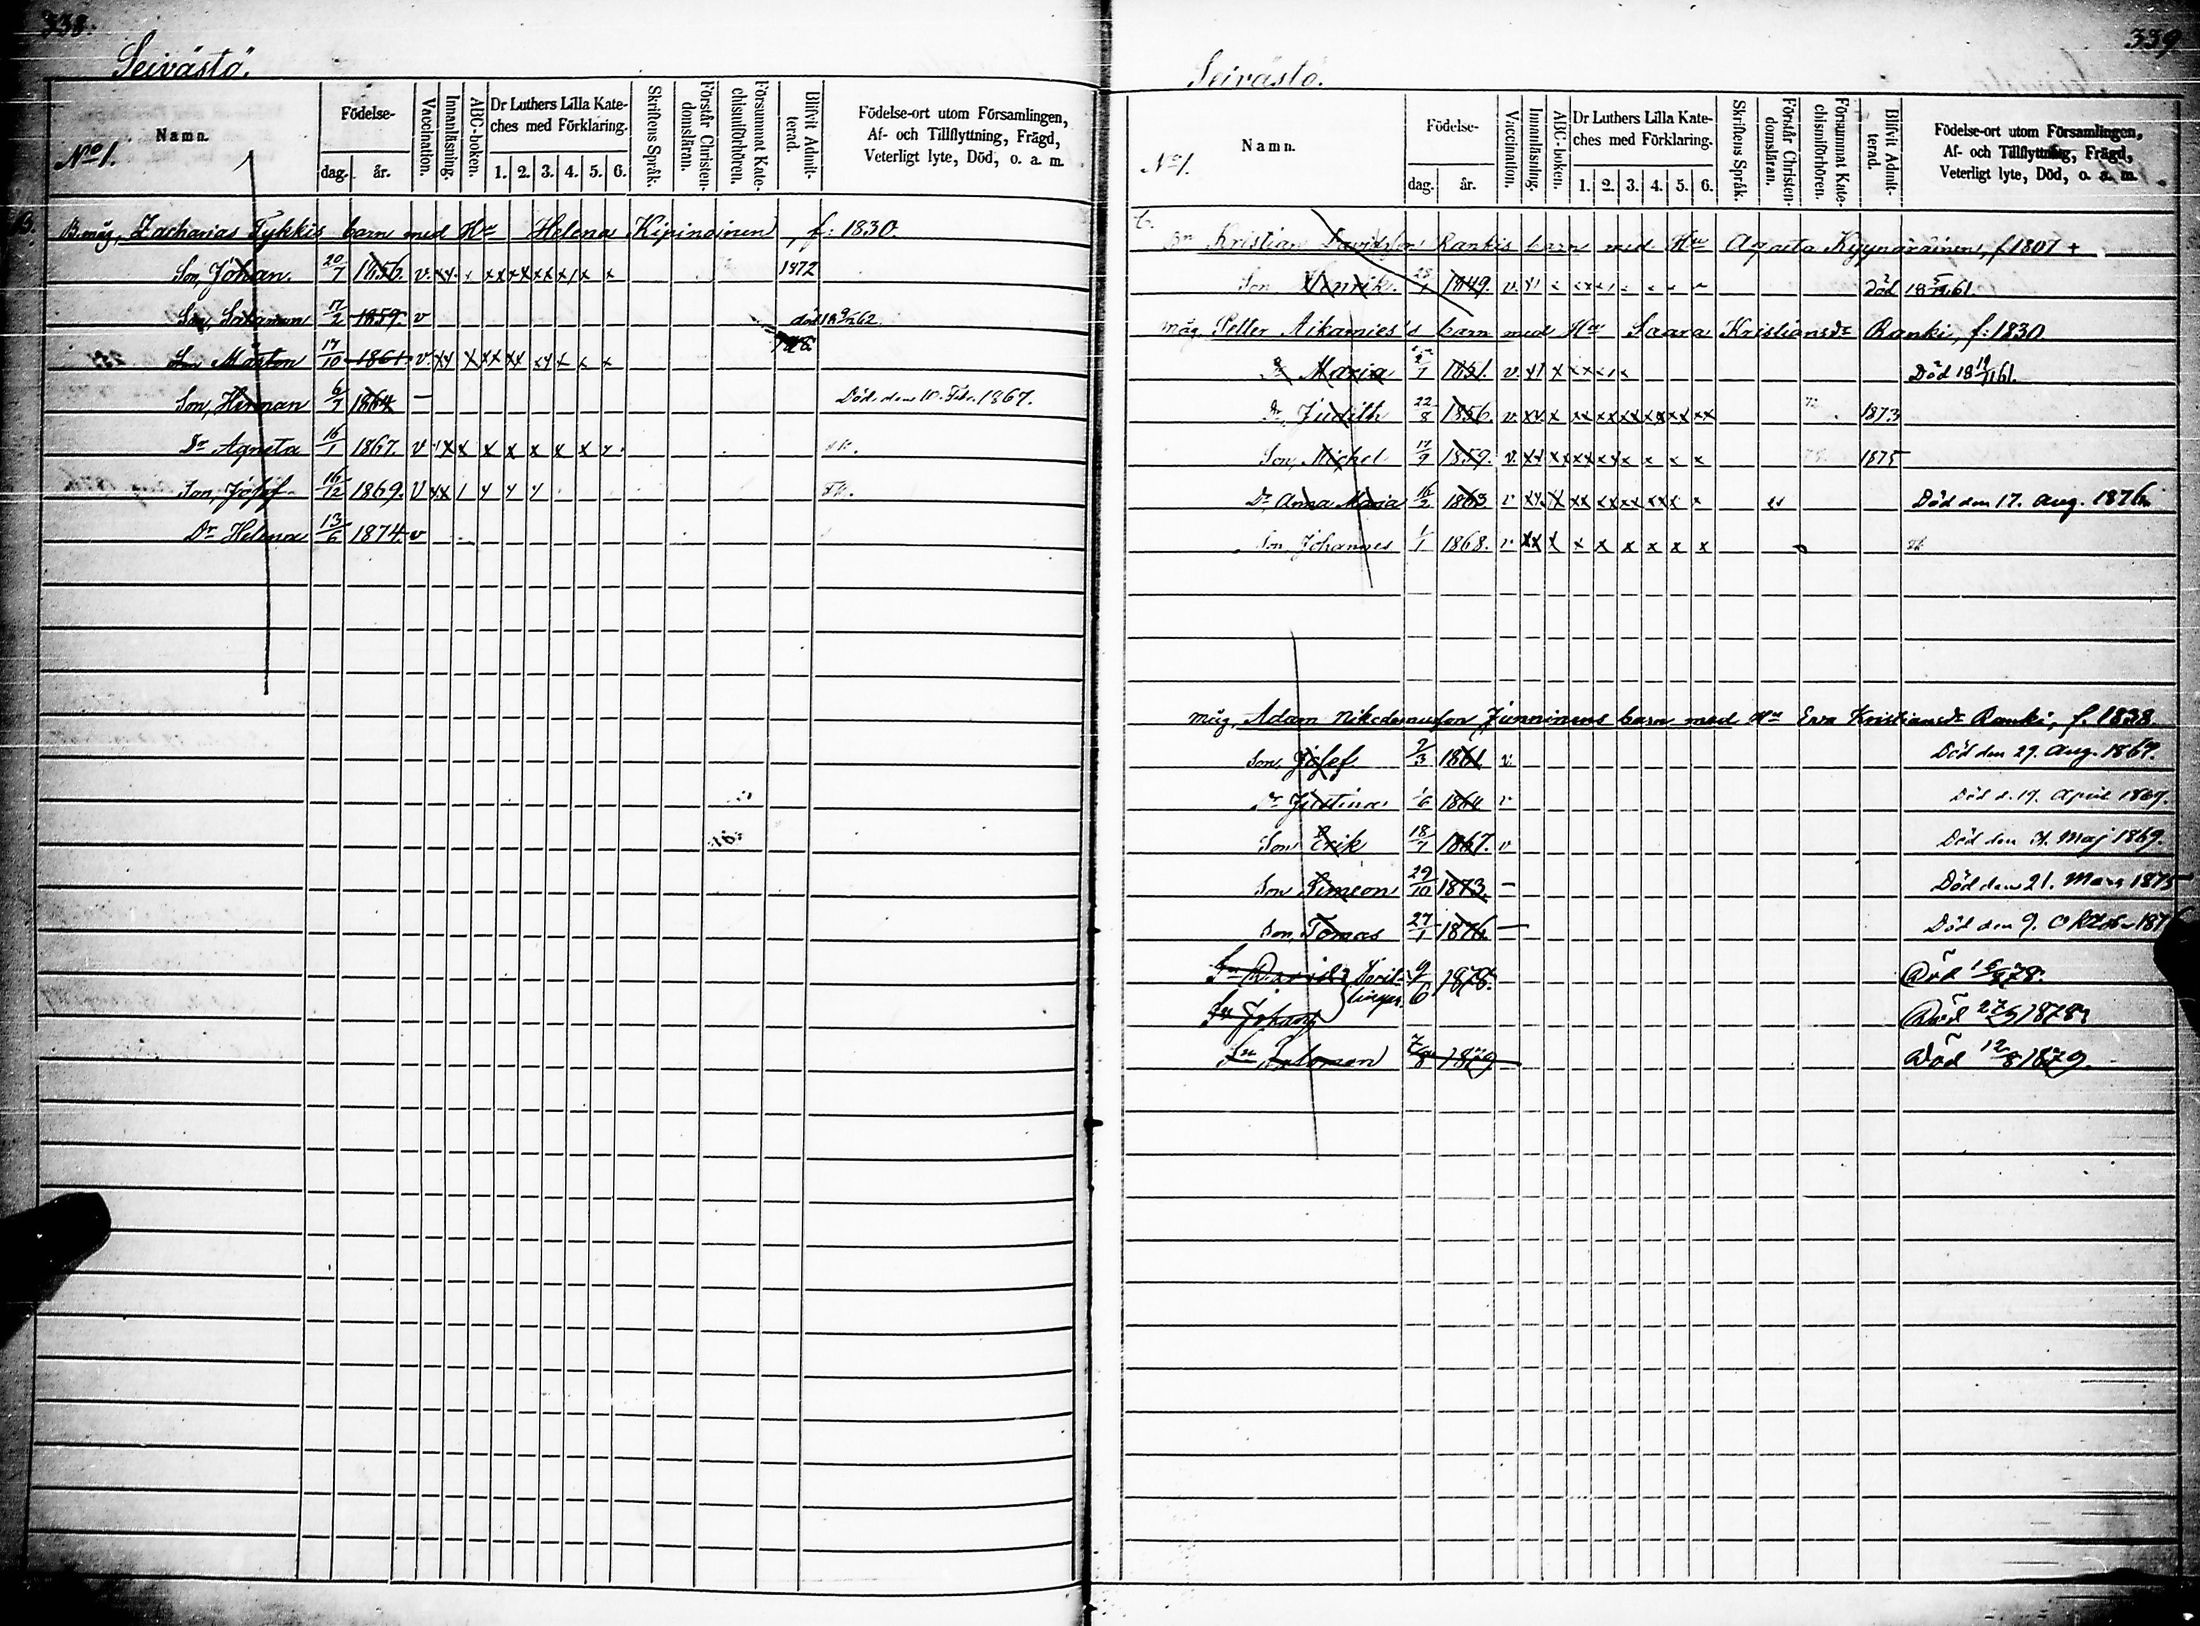 338.
Seivästö.
No 1. Namn. Födelse- dag. år. Vaccination. Innanläsning. ABC-boken. Dr Luthers Lilla Kateches med Förklaring. 1. 2. 3. 4. 5. 6. Skriftens Språk. Förstår Christendomsläran. Försummat Katechismiförhören. Blifvit Admitterad. Födelse-ort utom Församlingen, Af- och Tillflyttning, Frägd, Veterligt lyte, Död, o. a. m.
B. måg, Zacharias Tykkis barn med Hu Helena Kipinoinen, f: 1830.
Son, Johan 20/7 1856. v. xx x xx xx xx x x x 1872
Son, Salomon 17/2 1859. v död 18 62
Son Mårten 17/10 1861. v. xx x xx xx xx x x x
Son, Herman 6/7 1864 — Död den 10. Febr. 1867.
Dr Agneta 16/1 1867. v x x x x x x x
Son, Josef 16/12 1869. v
Dr Helena 13/6 1874. v
339
Seivästö.
No 1. Namn. Födelse- dag. år. Vaccination. Innanläsning. ABC-boken. Dr Luthers Lilla Kateches med Förklaring. 1. 2. 3. 4. 5. 6. Skriftens Språk. Förstår Christendomsläran. Försummat Katechismiförhören. Blifvit Admitterad. Födelse-ort utom Församlingen, Af- och Tillflyttning, Frägd, Veterligt lyte, Död, o. a. m.
Kristian Davidson Rankis barn med Hu Agneta f 1807 +
Son Henrik 1849. v. Död 61.
måg, Petter Aikamies's barn med Hu Saara Kristiansdr Ranki, f: 1830
Dr Maria 1851. v. Död 18 61.
Dr Judith 22/8 1856. v. xx x xx xx xx xx xx xx 1873
Son, Michel 17/9 1859. v. xx x xx xx x x x x 1875
Dr Anna Maria 16/2 1863 v xx x xx xx xx xx x x Död den 17. Aug. 1876.
Son Johannes 1/1 1868. v xx x x x x x x x
måg, Adam Nikodemusson Junninens barn med Hu Eva Kristiansdr Ranki, f. 1838.
Son, Josef 1861 v. Död den 29. Aug. 1869.
Dr Justina 1864 v Död d. 19. April 1869.
Son Erik 18/7 1867. v Död den Maj 1869.
Son Simeon 29/10 1873. — Död den 21. Mars 1875
Son, Tomas 27/1 1876. — Död den 9. Oktob. 187
Sn David Tvillingar 9/6 1878. Död 78.
Sn Johan Död 1878
Sn Salomon 1879 Död 12/8 1879.